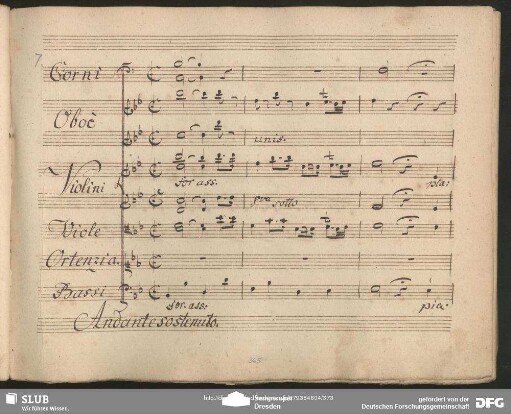 7.
Corni
Oboè
unis.
Violini
for: ass.
pia:
sotto
Viole
Ortenzia.
Bassi
for: ass:
pia:
Andante sostenuto.
SLUB
Wir führen Wissen.
Dresden
gefördert von der
Deutschen Forschungsgemeinschaft
DFG